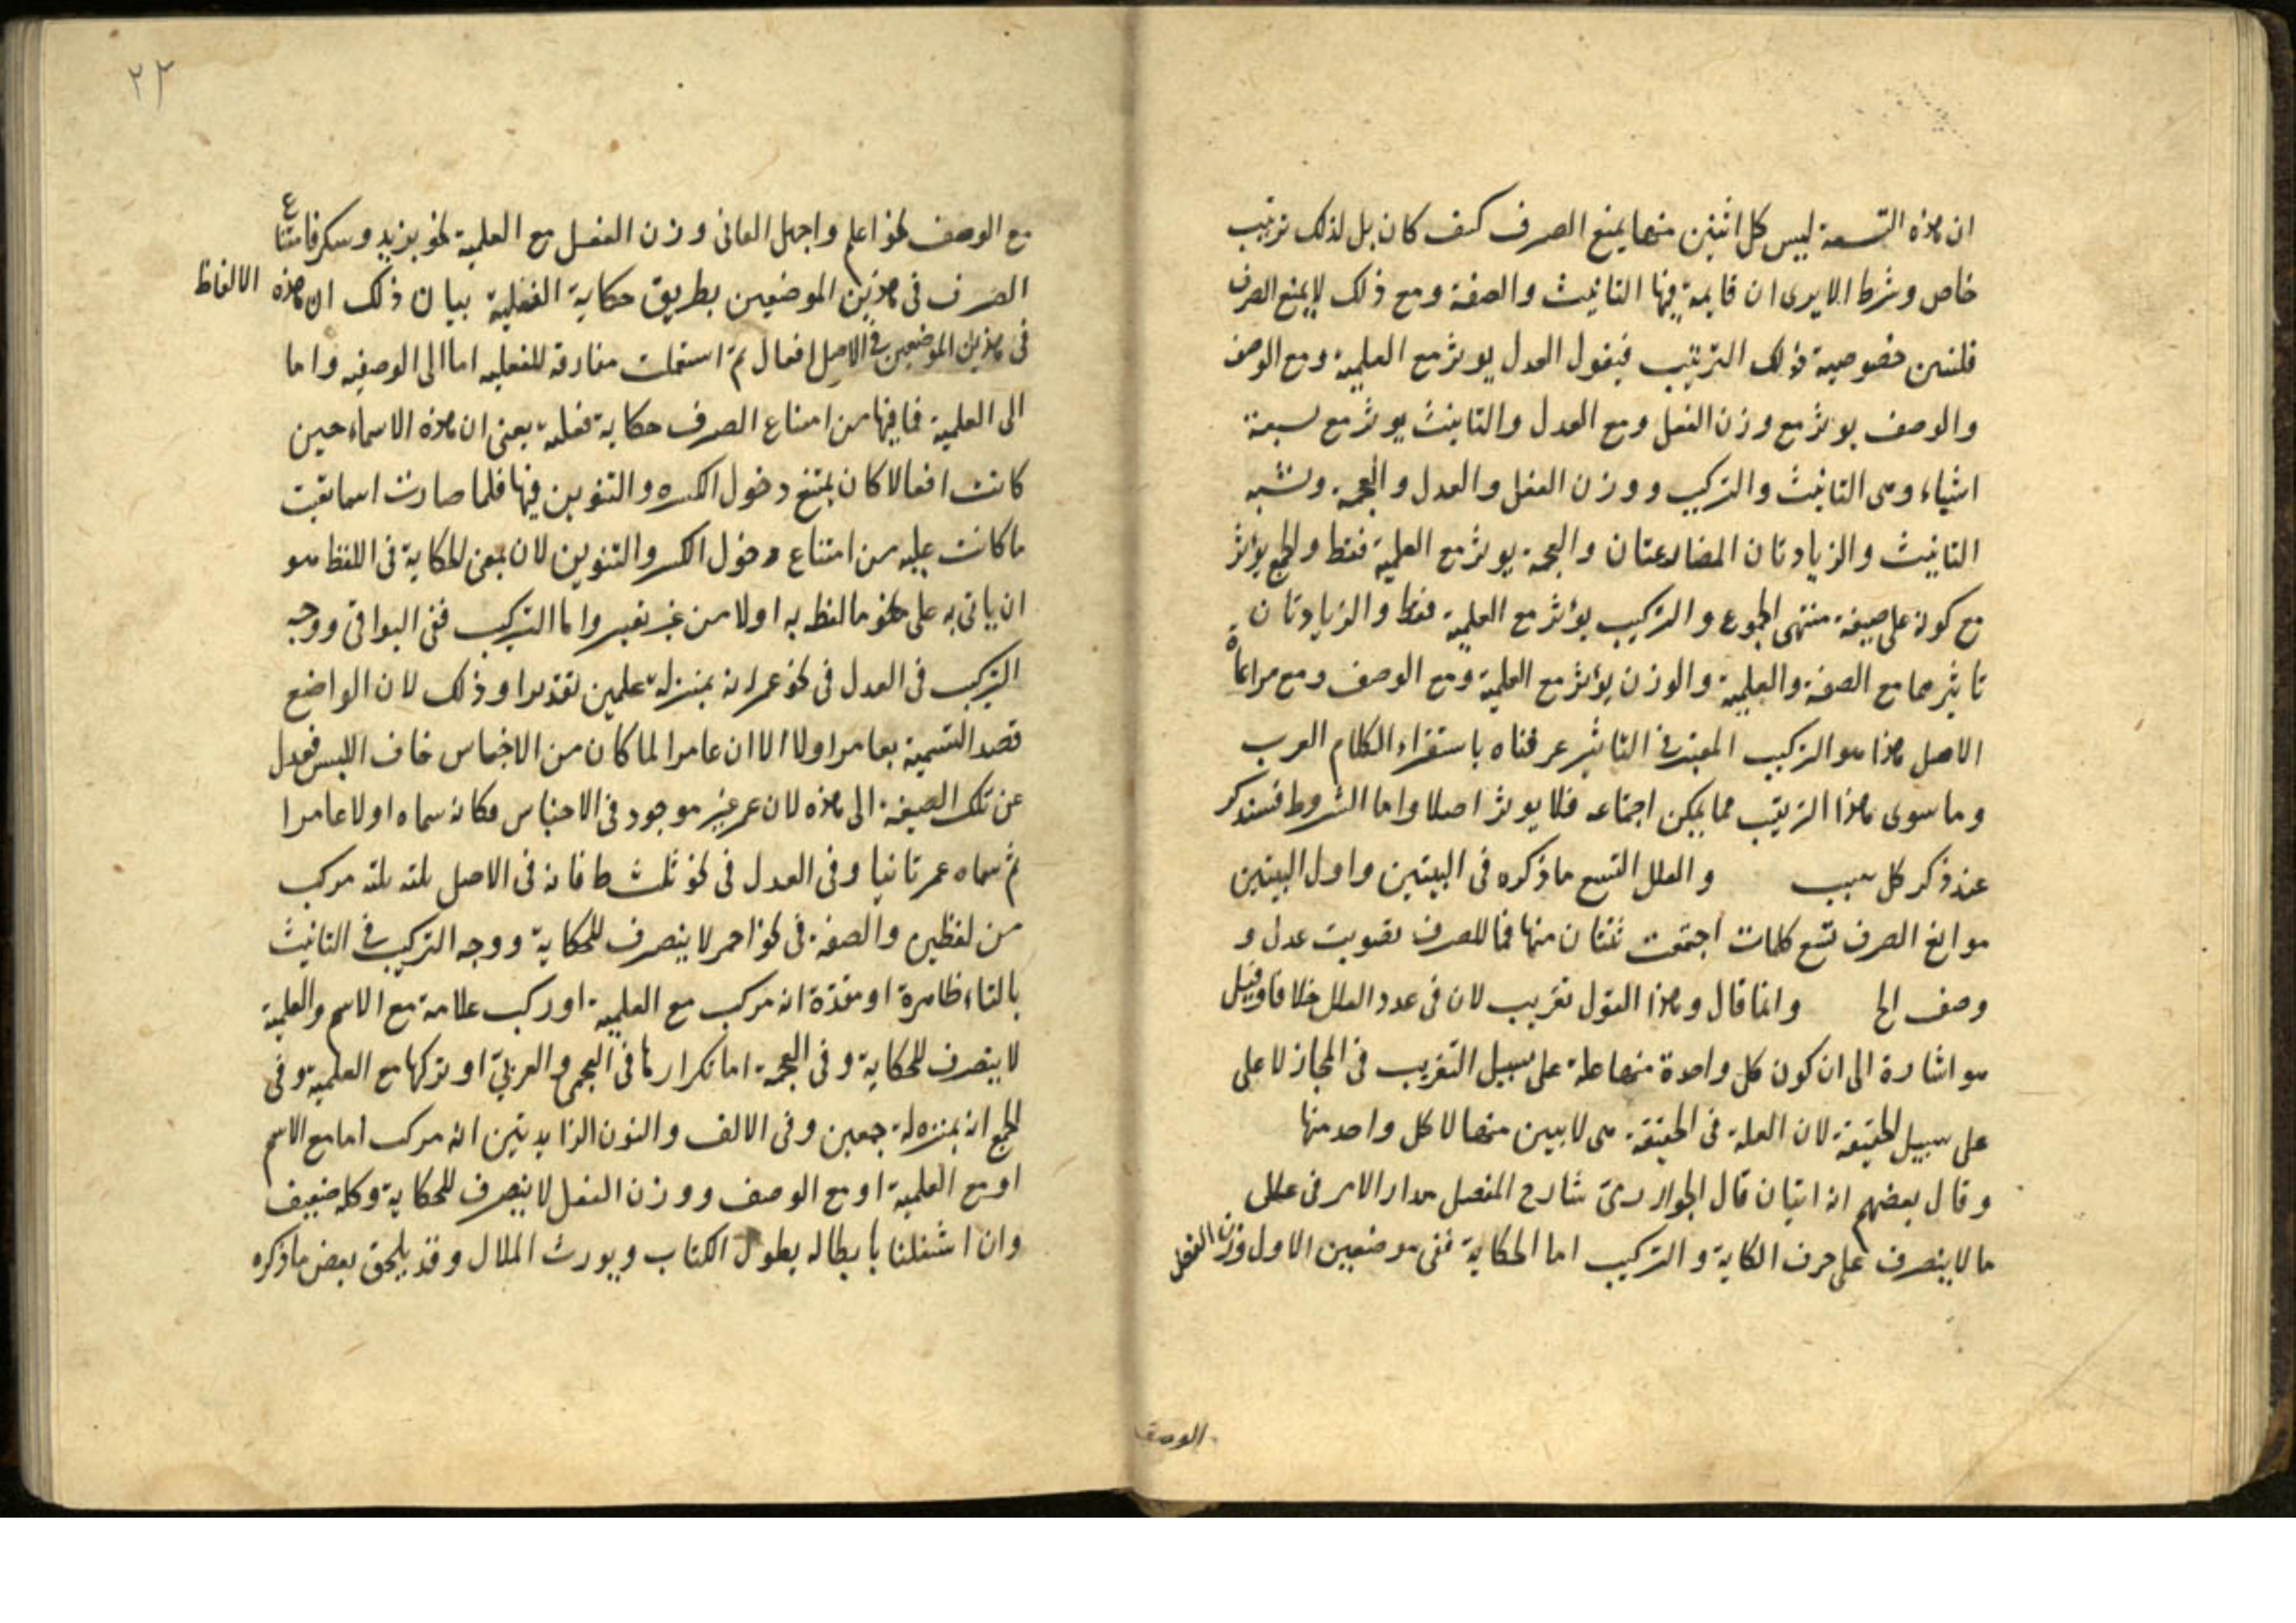 ان هذه التسعة ليس كل اثنين منها يمنع الصرف كيف كان بل لذلك ترتيب
خاص وشرط الا يرى ان قايمة فيها التانيث والصفة ومع ذلك لا يمنع الصرف
فلنبين خصوصية ذلك الترتيب فيقول العدل يوثر مع العلمية ومع الوصف
والوصف يوثر مع وزن الفعل ومع العدل والتانيث يوثر مع سبعة
اشياء وهى التانيث والتركيب ووزن الفعل والعدل والعجمة وشبه
التانيث والزيادتان المضارعتان والعجمة يوثر مع العلمية فقط والجمع يؤثر
مع كونه على صيغة منتهى الجموع والتركيب يؤثر مع العلمية فقط والزيادتان
تاثيرهما مع الصفة والعلمية والوزن يؤثر مع العلمية ومع الوصف ومع مراعاة
الاصل هذا هو التركيب المعتبر فى التاثير عرفناه باستقراء الكلام العرب
وما سوى هذا الترتيب مما يمكن اجتماعه فلا يوثر اصلا واما الشروط فسنذكر
عند ذكر كل سبب والعلل التسع ما ذكره فى البيتين واول البيتين
موانع الصرف تسع كلمات اجتمعت ثنتان منها فما للصرف تصويب عدل و
وصف الخ وانما قال وهذا القول تقريب لان فى عدد العلل خلافا وقيل
هو اشارة الى ان كون كل واحدة منها علة على سبيل التقريب فى المجاز لا على
على سبيل الحقيقة لان العلة فى الحقيقة هى لا بيين منها لا كل واحد منها
وقال بعضهم انه اثنان قال شارح المفصل مدار الامر فى علل
ما لا ينصرف على حرف الكاية والتركيب اما الحكاية ففى موضعين الاول وزن الفعل
الوصف
٢٣
مع الوصف نحو اعلم واجهل الثانى وزن الفعل مع العلمية نحو يزيد ويشكر فامتناع
الصرف فى هذين الموضعين بطريق حكاية الفعلية بيان ذلك ان هذه الالفاظ
فى هذين الموضعين فى الاصل افعال ثم استعملت مفارقة للفعليه اما الى الوصفيه واما
الى العلمية فما فيها من امتناع الصرف حكاية فعلية يعنى ان هذه الاسماء حين
كانت افعالا كان يمتنع دخول الكسره والتنوين فيها فلما صارت اسما بقيت
ما كانت عليه من امتناع دخول الكسر والتنوين لان معنى الحكاية فى اللفظ هو
ان ياتى به على نحو ما لفظ به اولا من غير تغيير واما التركيب ففى البواقى ووجه
التركيب فى العدل فى نحو عمر انه بمنزلة علمين تقديرا وذلك لان الواضع
قصد التسمية بعامر اولا الا ان عامرا لما كان من الاجناس خاف اللبس فعدل
عن تلك الصيغة الى هذه لان عمر غير موجود فى الاجناس فكانه سماه اولا عامرا
ثم سماه عمر ثانيا وفى العدل فى نحو ثلث فانه فى الاصل ثلثه ثلثه مركب
من لفظين والصفة فى نحو احمر لا ينصرف للحكاية ووجه التركيب فى التانيث
بالتاء ظاهرة او مقدرة انه مركب مع العلمية او ركب علامة مع الاسم والعلمية
لا ينصرف للحكاية وفى العجمة اما تكرارها فى العجمى والعربى او تركبها مع العلمية وفى
الجمع انه بمنزلة جمعين وفى الالف والنون الزايدتين انه مركب اما مع الاسم
او مع العلمية او مع الوصف ووزن الفعل لا ينصرف للحكاية وكله ضعيف
وان اشتغلنا بابطاله يطول الكتاب ويورث الملال وقد يلحق بعض ما ذكره